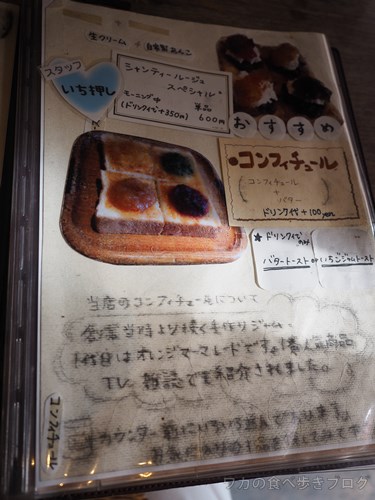 生クリーム 自家製あんこ
スタッフ
いち押し
シャンティールージュ
スペシャル
モーニング中
(ドリンク代+350円)
単品
600円
おすすめ
コンフィチュール
コンフィチュール
+
バター
ドリンク代+100yen
★ドリンク代のみ
バタートースト or いちごジャムトースト
当店のコンフィチュールについて
創業当時より続く手作りジャム。
1代目はオレンジマーマレードです。1番人気商品
TV、雑誌でも紹介されました。
カウンター前にいろいろ並んでおります。
コンフィチュール
ワカの食べ歩きブログ